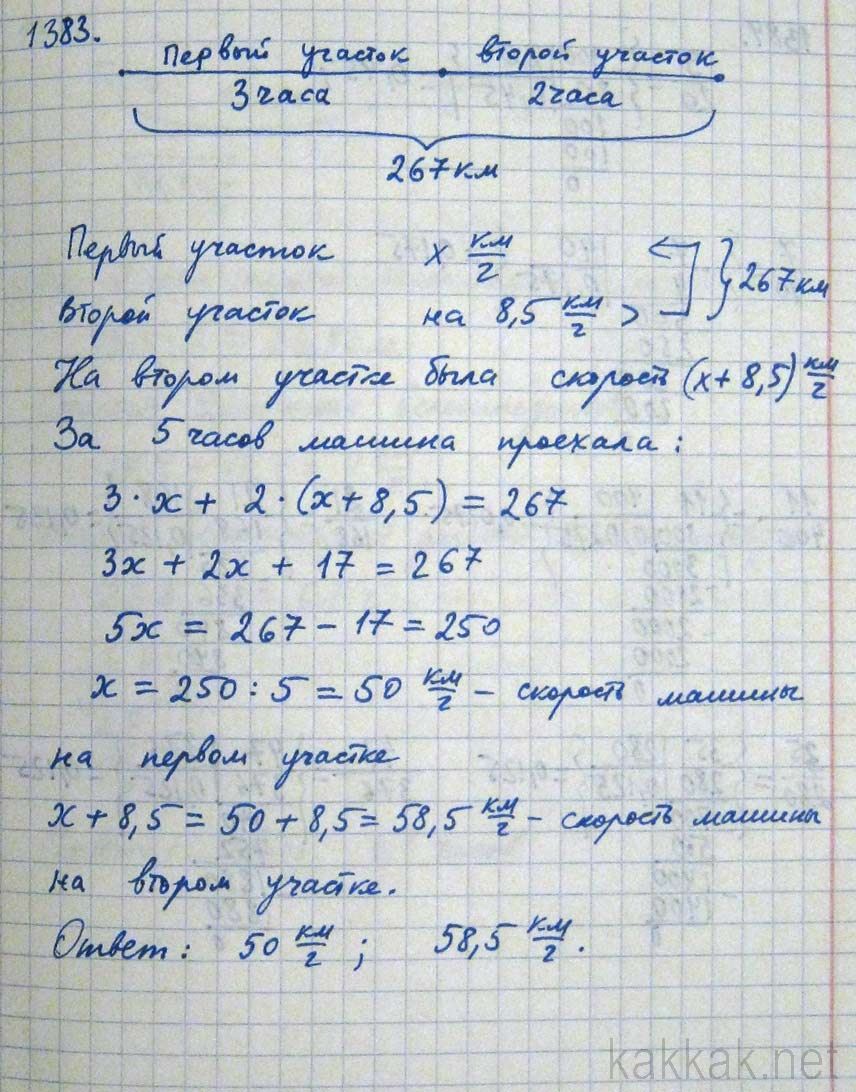 1383.
Первый участок второй участок
3 часа 2 часа
267 км
Первый участок x км/г
второй участок на 8,5 км/г > } 267 км
На втором участке была скорость (x + 8,5) км/г
За 5 часов машина проехала:
3 · x + 2 · (x + 8,5) = 267
3x + 2x + 17 = 267
5x = 267 - 17 = 250
x = 250 : 5 = 50 км/г - скорость машины
на первом участке
x + 8,5 = 50 + 8,5 = 58,5 км/г - скорость машины
на втором участке.
Ответ: 50 км/г ; 58,5 км/г.
kakkak.net